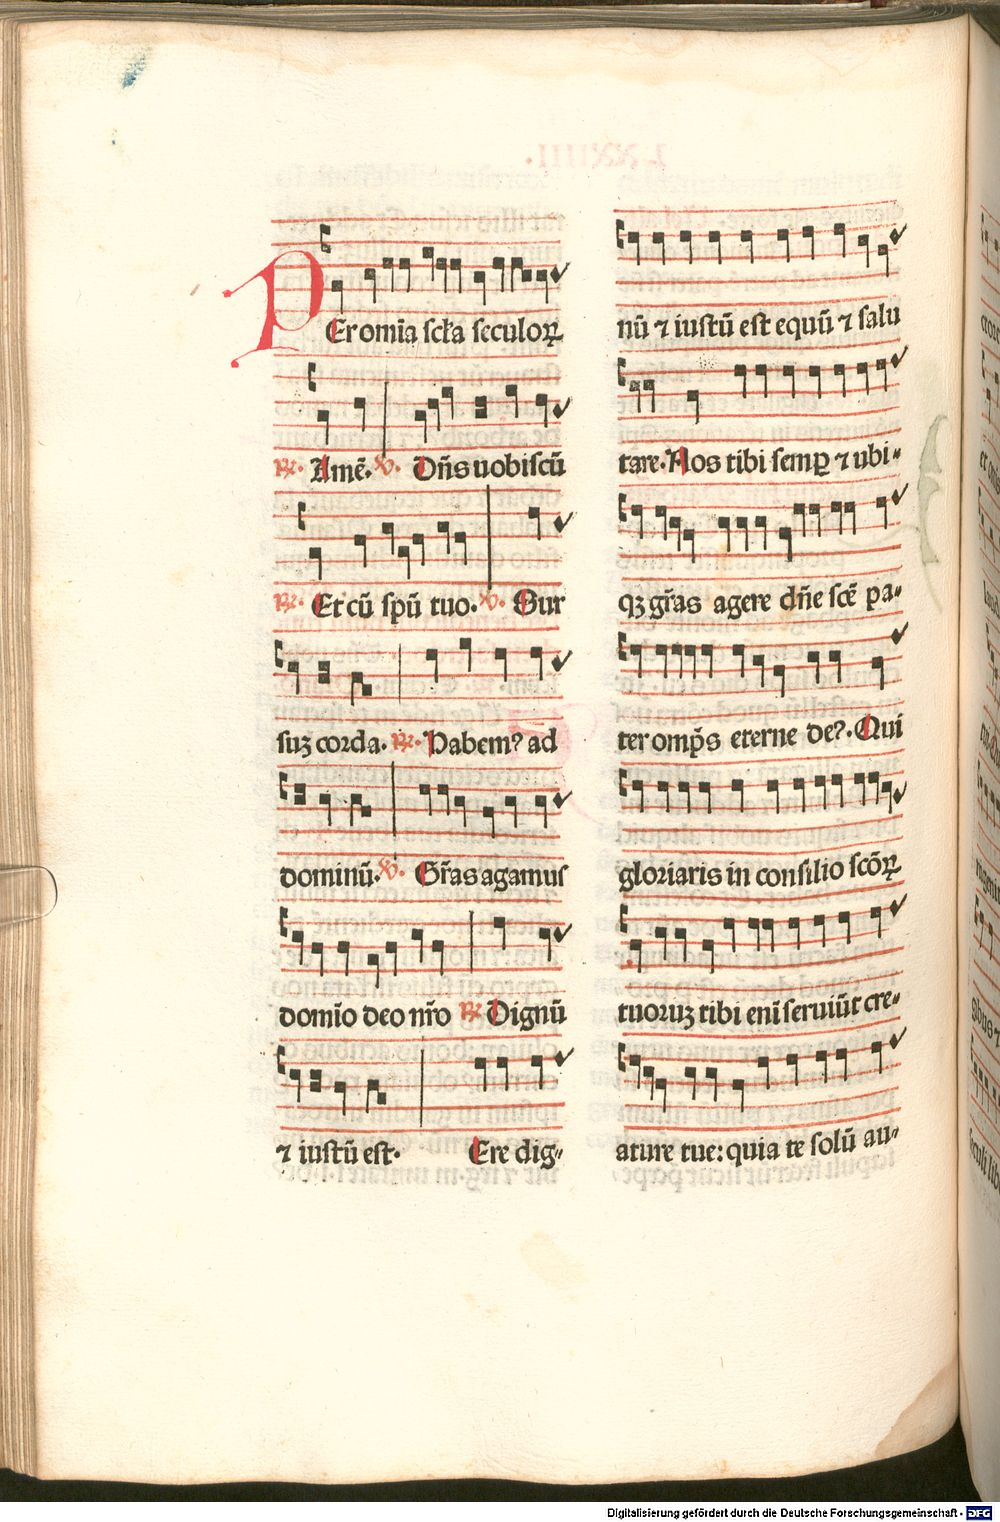 PEr omīa scła seculoꝝ
℟. Amē. ℣. Dn̄s uobiscū
℟. Et cū spū tuo. ℣. Sur
suꝫ corda. ℟. Habemꝰ ad
dominū. ℣. Gr̄as agamus
domīo deo nr̄o ℟ Dignū
⁊ iustū est. Ere dig⸗
nū ⁊ iustū est equū ⁊ salu
tare. Nos tibi semꝑ ⁊ ubi⸗
qꝫ gr̄as agere dn̄e scē pa⸗
ter omp̄s eterne deꝰ. Qui
gloriaris in consilio scōꝝ
tuoruꝫ tibi enī seruiūt cre⸗
ature tue: quia te solū au⸗
Digitalisierung gefördert durch die Deutsche Forschungsgemeinschaft - DFG